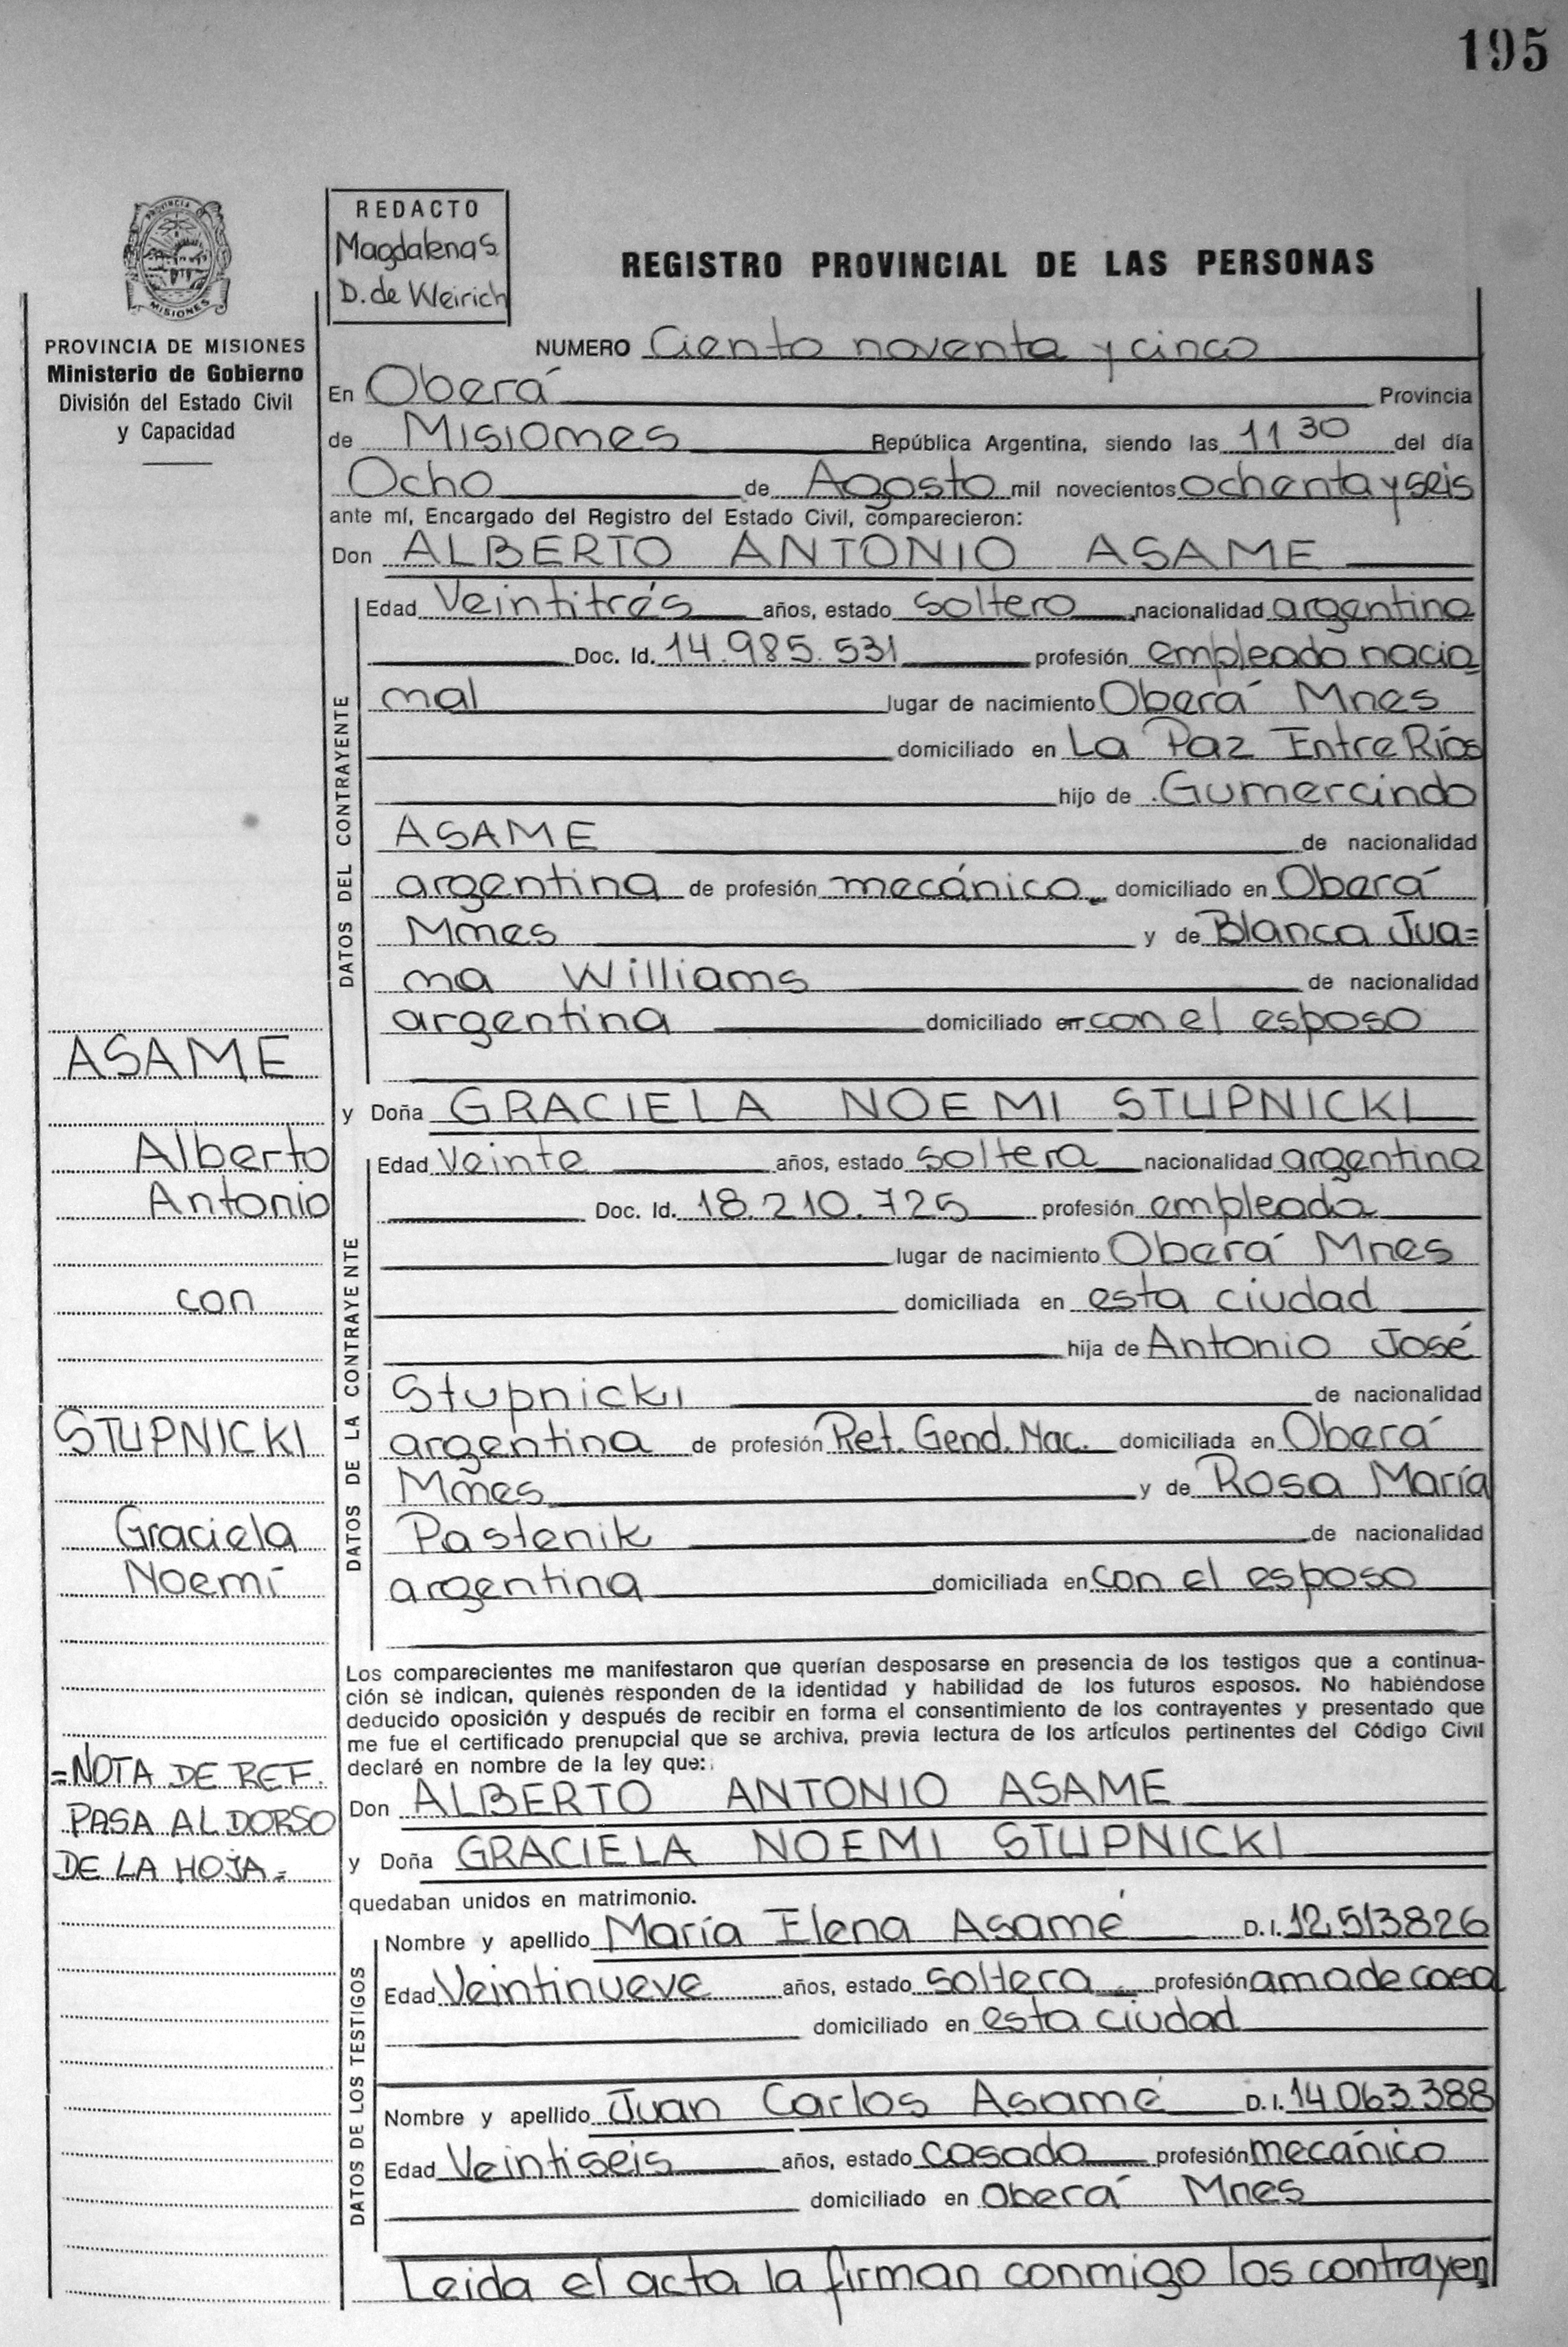 195
PROVINCIA DE
MISIONES
REDACTO
Magdalena S.
D. de Weirich
REGISTRO PROVINCIAL DE LAS PERSONAS
PROVINCIA DE MISIONES
Ministerio de Gobierno
División del Estado Civil
y Capacidad
NUMERO Ciento noventa y cinco
En Oberá Provincia
de Misiones República Argentina, siendo las 11 30 del día
Ocho de Agosto mil novecientos ochenta y seis
ante mí, Encargado del Registro del Estado Civil, comparecieron:
Don ALBERTO ANTONIO ASAME
DATOS DEL CONTRAYENTE
Edad Veintitrés años, estado soltero nacionalidad argentina
Doc. Id. 14.985.531 profesión empleado nacio
nal lugar de nacimiento Oberá Mnes
domiciliado en La Paz Entre Ríos
hijo de Gumercindo
ASAME de nacionalidad
argentina de profesión mecánico domiciliado en Oberá
Mnes y de Blanca Jua=
na Williams de nacionalidad
argentina domiciliado en con el esposo
y Doña GRACIELA NOEMI STUPNICKI
DATOS DE LA CONTRAYENTE
Edad Veinte años, estado soltera nacionalidad argentina
Doc. Id. 18.210.725 profesión empleada
lugar de nacimiento Oberá Mnes
domiciliada en esta ciudad
hija de Antonio José
Stupnicki de nacionalidad
argentina de profesión Ret. Gend. Nac. domiciliada en Oberá
Mnes y de Rosa María
Pastenik de nacionalidad
argentina domiciliada en con el esposo
ASAME
Alberto
Antonio
con
STUPNICKI
Graciela
Noemí
=NOTA DE REF.
PASA AL DORSO
DE LA HOJA.=
Los comparecientes me manifestaron que querían desposarse en presencia de los testigos que a continua-
ción se indican, quienes responden de la identidad y habilidad de los futuros esposos. No habiéndose
deducido oposición y después de recibir en forma el consentimiento de los contrayentes y presentado que
me fue el certificado prenupcial que se archiva, previa lectura de los artículos pertinentes del Código Civil
declaré en nombre de la ley que:
Don ALBERTO ANTONIO ASAME
y Doña GRACIELA NOEMI STUPNICKI
quedaban unidos en matrimonio.
DATOS DE LOS TESTIGOS
Nombre y apellido María Elena Asamé D. I. 12.513826
Edad Veintinueve años, estado soltera profesión ama de casa
domiciliado en esta ciudad
Nombre y apellido Juan Carlos Asamé D. I. 14.063.388
Edad Veintiseis años, estado casado profesión mecánico
domiciliado en Oberá Mnes
Leida el acta la firman conmigo los contrayen